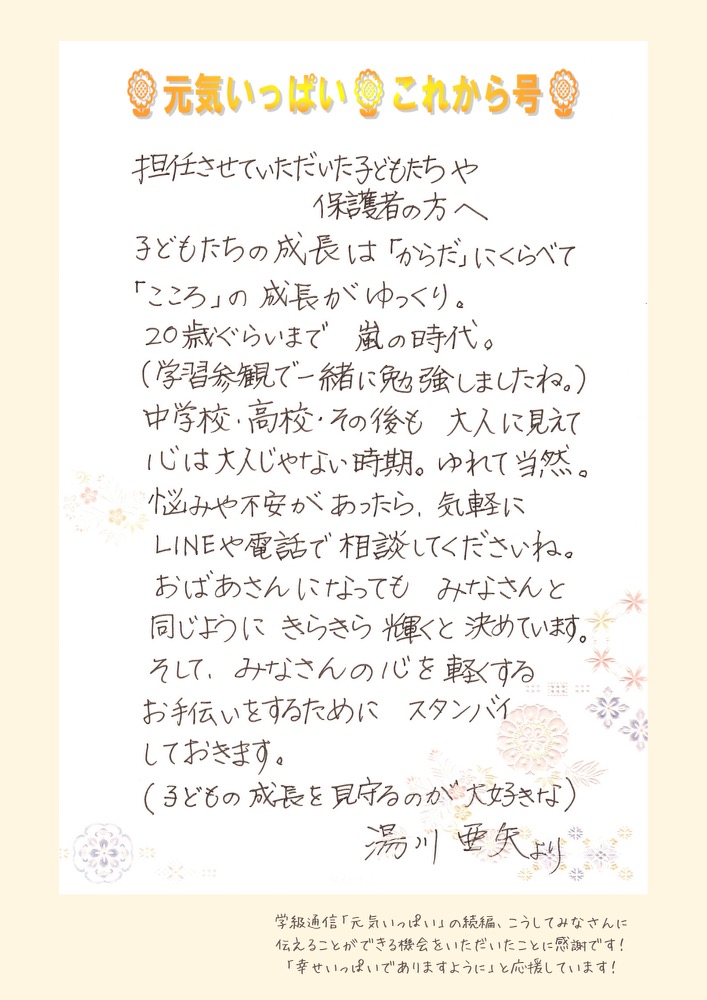 元気いっぱい これから号
担任させていただいた子どもたちや
保護者の方へ
子どもたちの成長は「からだ」にくらべて
「こころ」の成長がゆっくり。
20歳ぐらいまで 嵐の時代。
(学習参観で一緒に勉強しましたね。)
中学校・高校・その後も 大人に見えて
心は大人じゃない時期。ゆれて当然。
悩みや不安があったら、気軽に
LINEや電話で相談してくださいね。
おばあさんになっても みなさんと
同じように きらきら輝くと決めています。
そして、みなさんの心を軽くする
お手伝いをするために スタンバイ
しておきます。
(子どもの成長を見守るのが大好きな)
湯川 亜矢より
学級通信「元気いっぱい」の続編、こうしてみなさんに
伝えることができる機会をいただいたことに感謝です!
「幸せいっぱいでありますように」と応援しています!